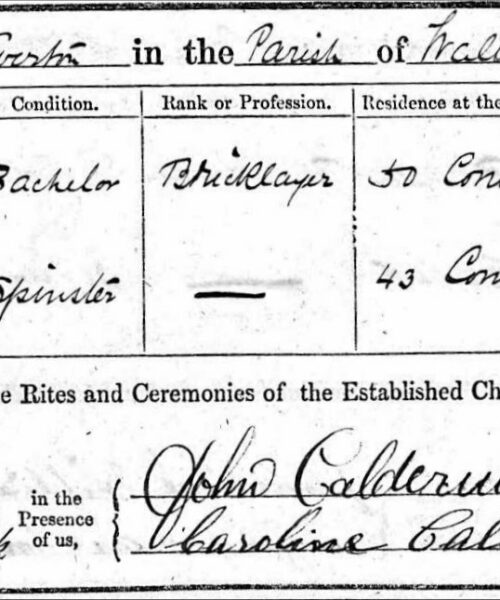 Everton in the Parish of Wal
Condition. Rank or Profession. Residence at the
Bachelor Bricklayer 50 Con
Spinster — 43 Con
e Rites and Ceremonies of the Established Ch
John Calderw
in the
Presence
of us,
Caroline Cal